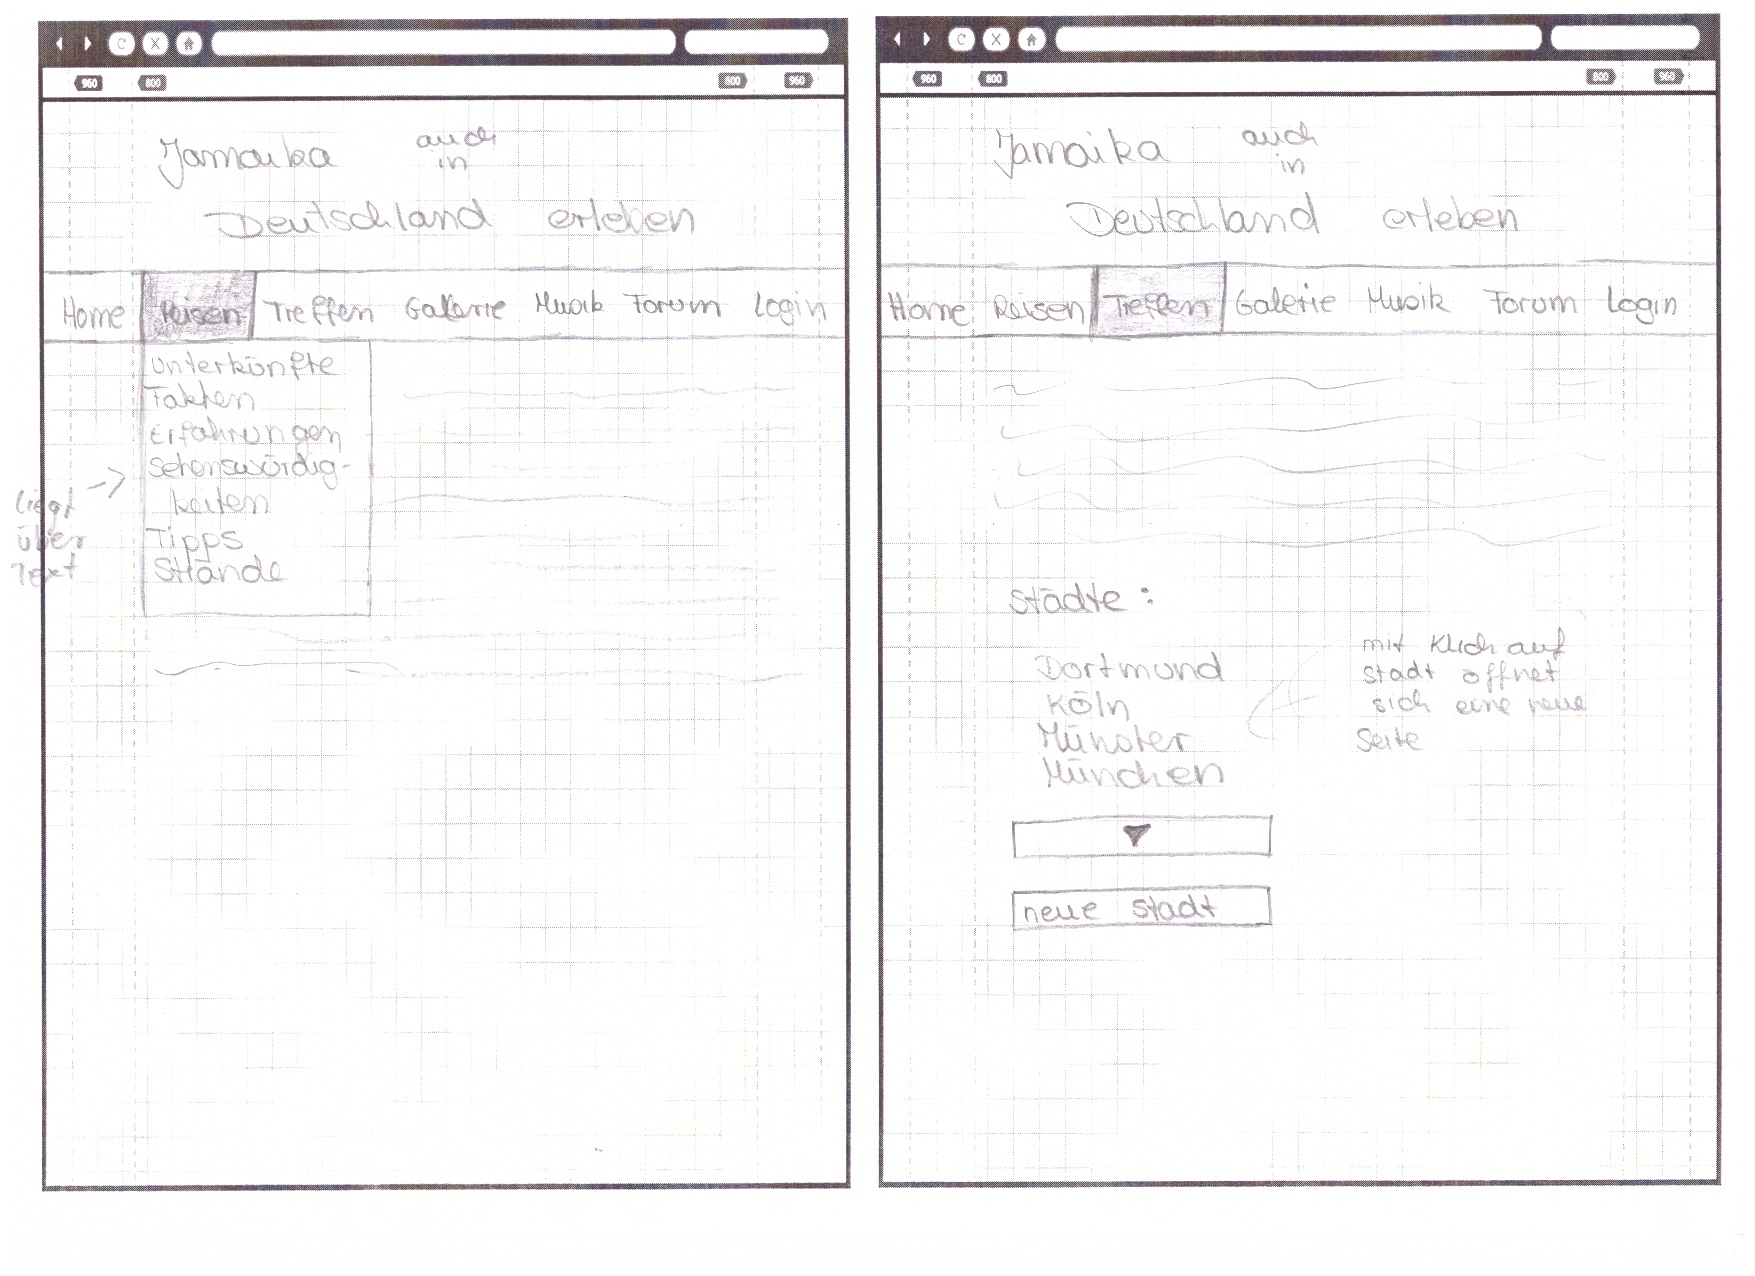 C X
960 800 800 960
Jamaika auch
in
Deutschland erleben
Home Reisen Treffen Galerie Musik Forum Login
Unterkünfte
Fakten
Erfahrungen
Sehenswürdig-
keiten
Tipps
Strände
liegt
über
Text
C X
960 800 800 960
Jamaika auch
in
Deutschland erleben
Home Reisen Treffen Galerie Musik Forum Login
Städte :
Dortmund
Köln
Münster
München
mit Klick auf
Stadt öffnet
sich eine neue
Seite
neue Stadt